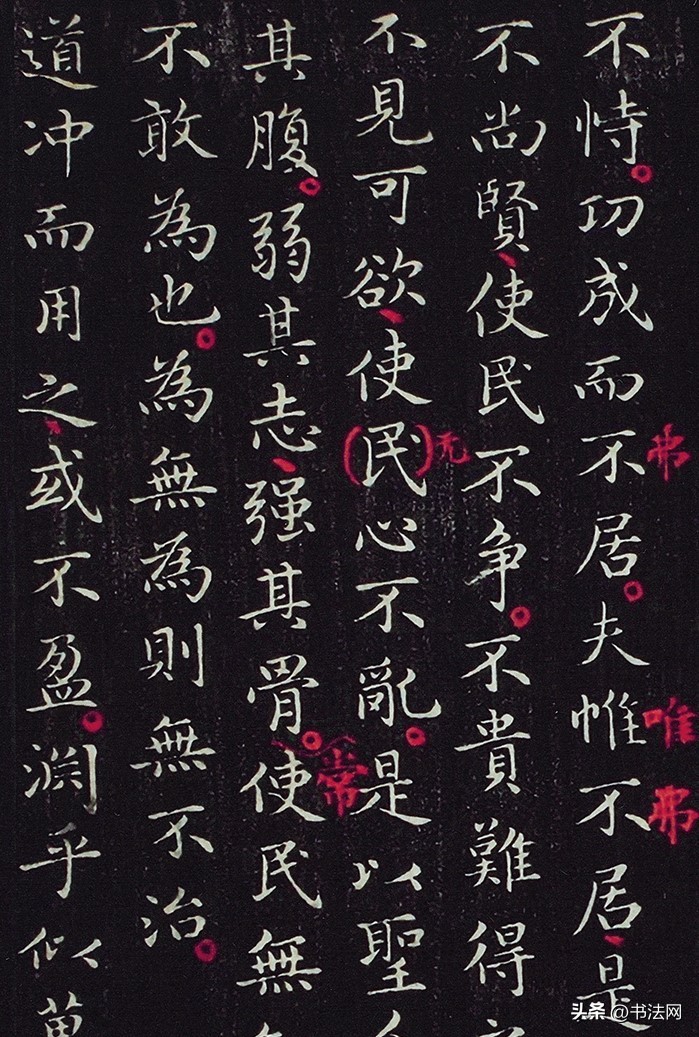 不恃功成而不居夫惟不居是
弗
唯
弗
不尚賢使民不争不貴難得
不見可欲使民心不亂是以聖
(
)无
其腹弱其志强其骨使民無
常
不敢為也為無為則無不治
道冲而用之或不盈渊乎似萬
头条 @书法网